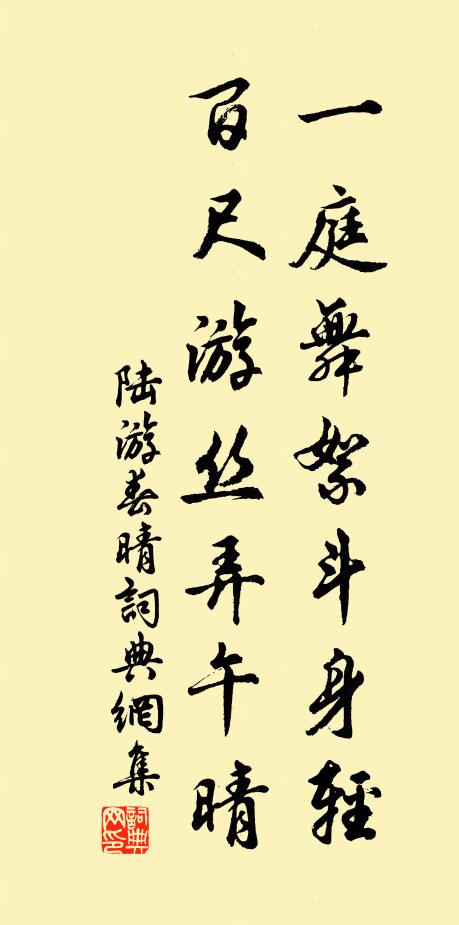 一庭舞絮斗身輕
百尺游丝弄午晴
陆游春晴詞典網集
詞典
网印